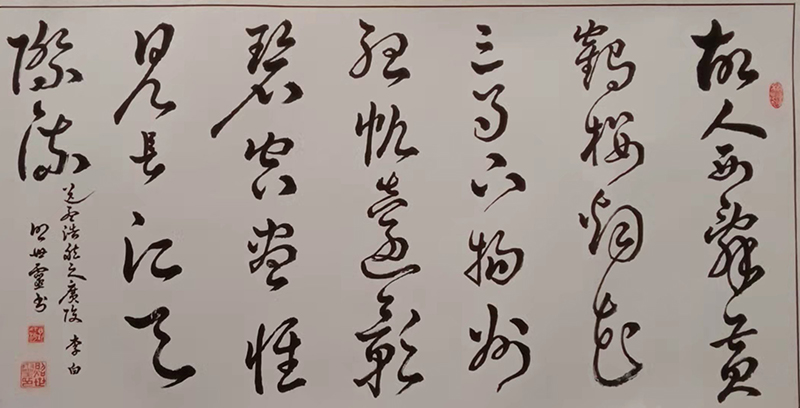 故人西辭黃
鶴樓烟花
三月下揚州
孤帆遠影
碧空盡惟
見長江天
際流
送孟浩然之廣陵 李白
靈书